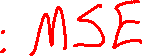 : MSE